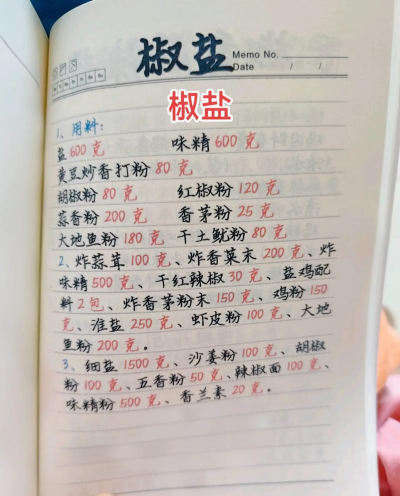 椒盐
Memo No.
Date / /
椒盐
1、用料:
盐600克 味精600克
黄豆炒香打粉80克
胡椒粉80克 红椒粉120克
蒜香粉200克 香茅粉25克
大地鱼粉180克 干土鱿粉80克
2、炸蒜茸100克、炸香菜末200克、炸
味精500克、干红辣椒30克、盐鸡配
料2包、炸香茅粉末150克、鸡粉150
克、淮盐250克、虾皮粉100克、大地
鱼粉200克。
3、细盐1500克、沙姜粉100克、胡椒
粉100克、五香粉50克、辣椒面100克、
味精粉500克、香兰素20克。